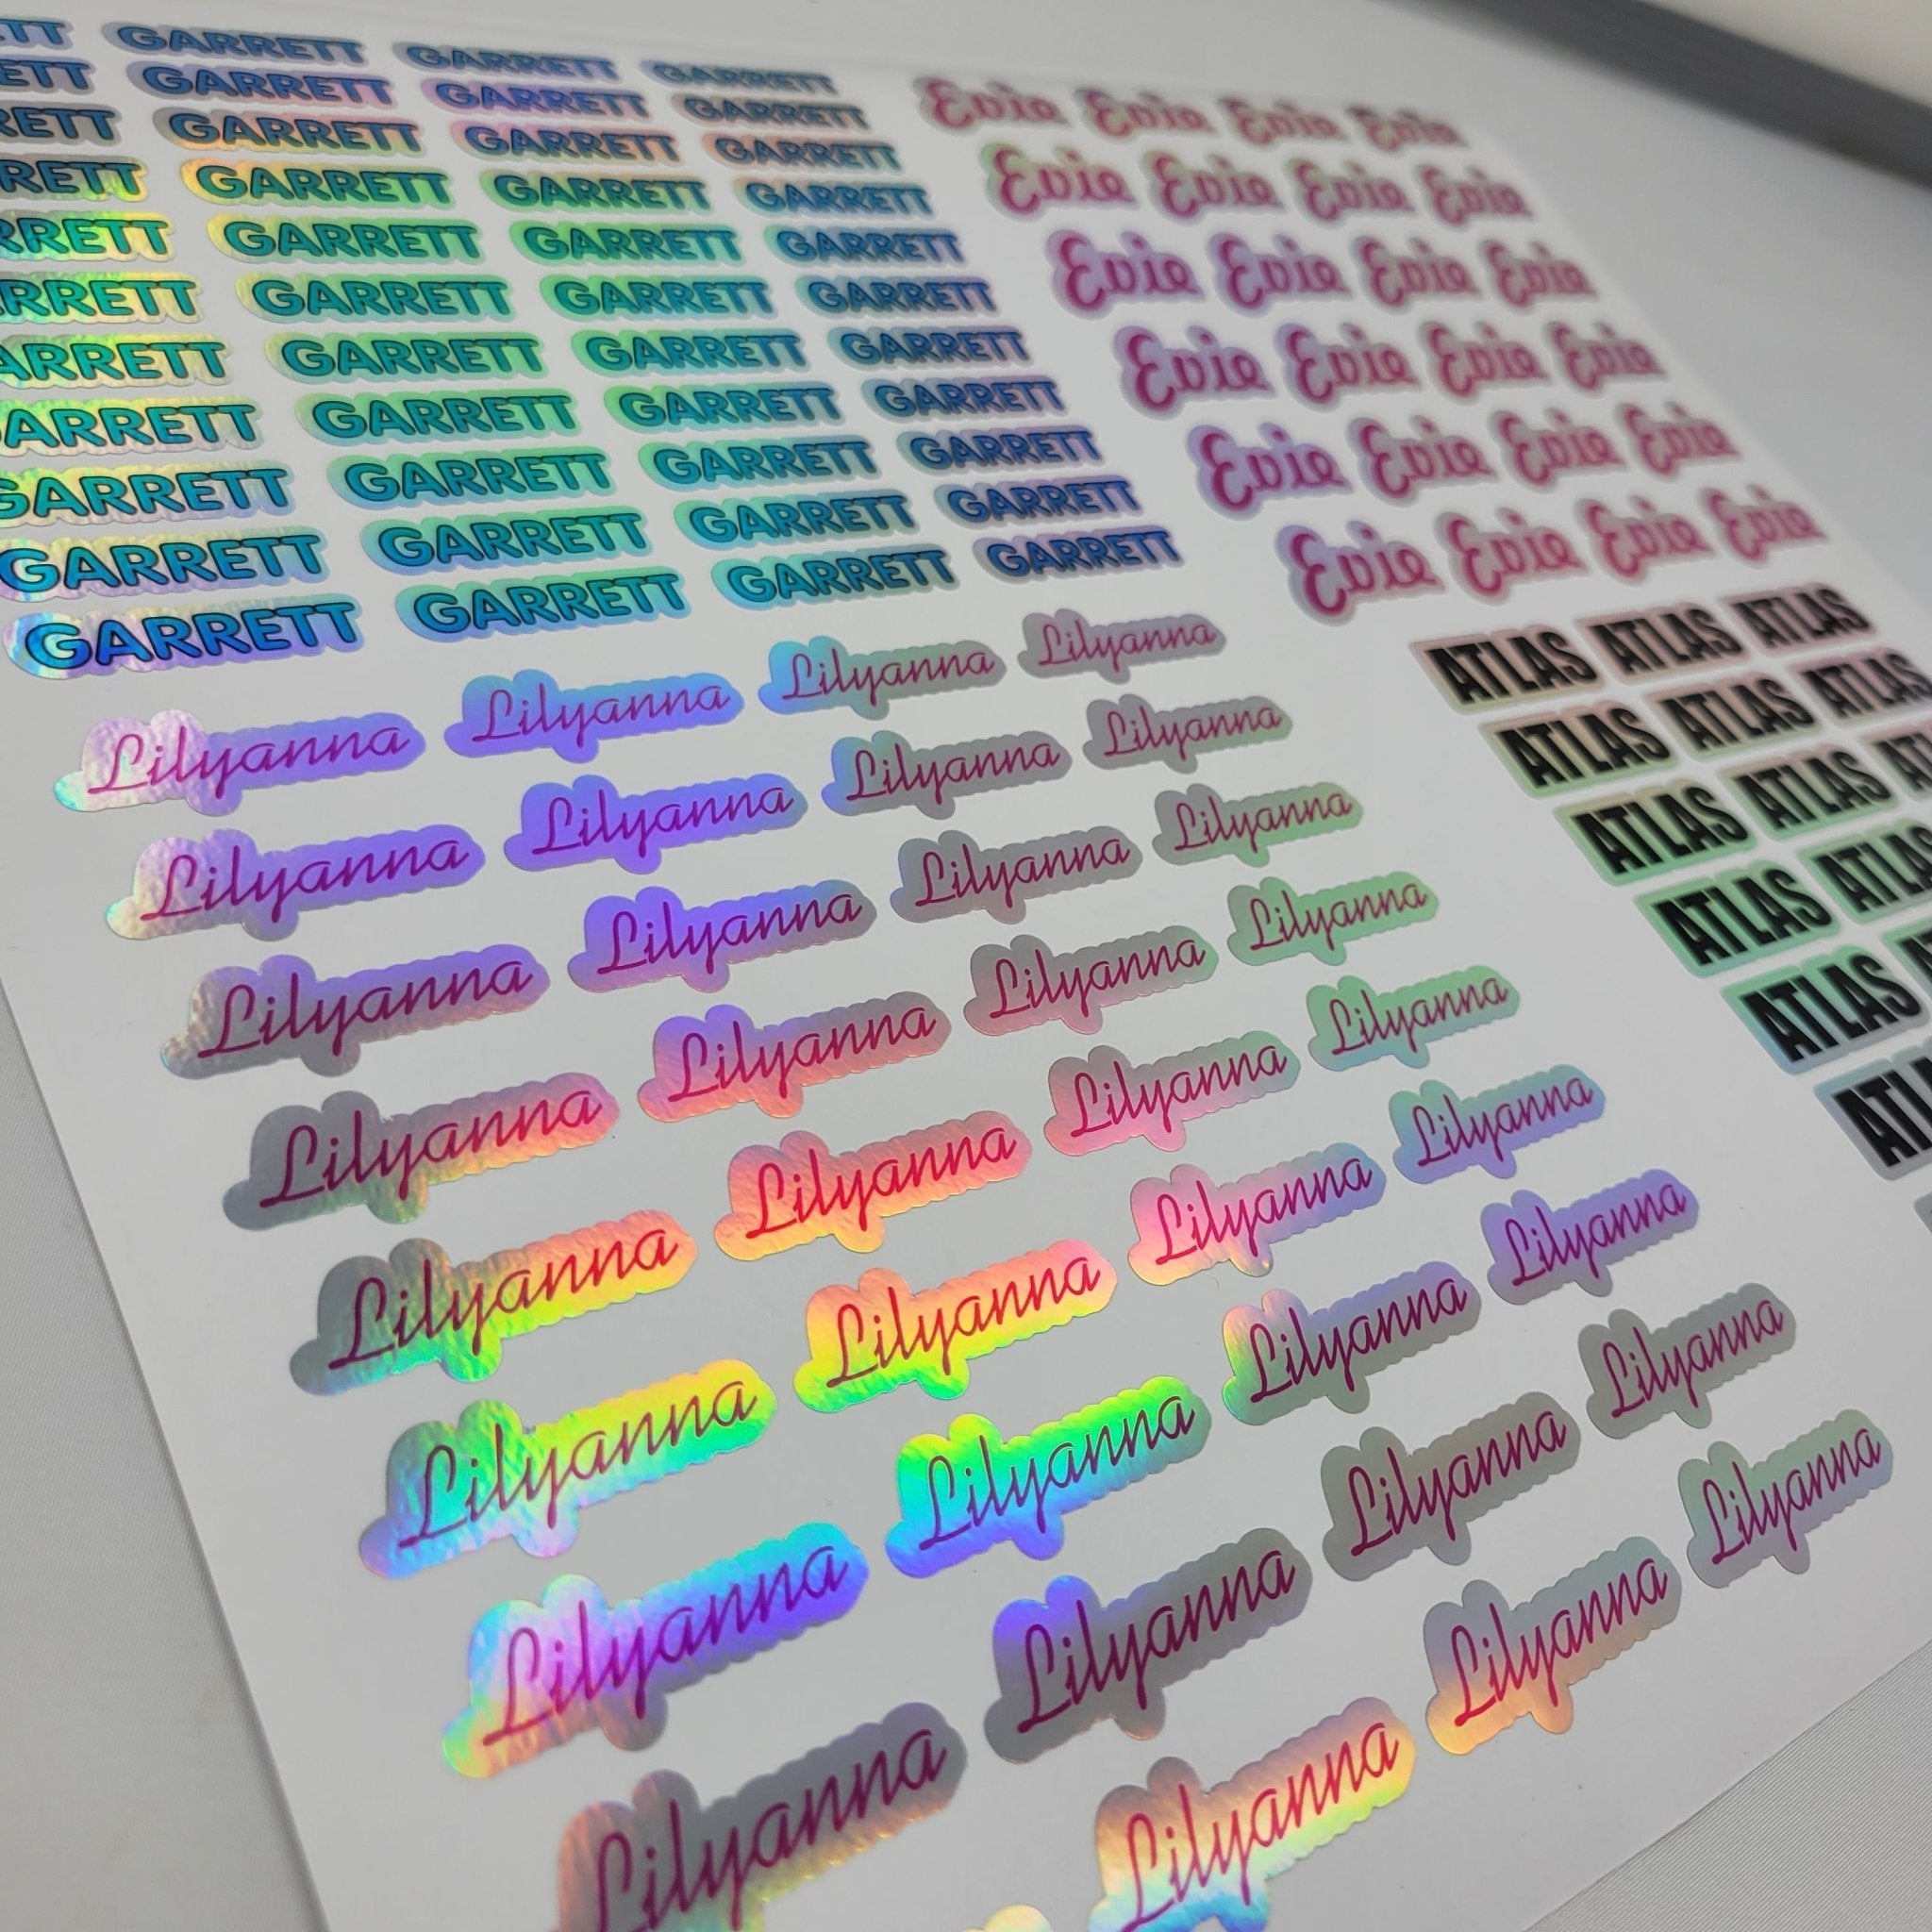 ETT GARRETT GARRETT GARRETT
ETT GARRETT GARRETT GARRETT
RETT GARRETT GARRETT GARRETT
RETT GARRETT GARRETT GARRETT
RRETT GARRETT GARRETT GARRETT
RRETT GARRETT GARRETT GARRETT
ARRETT GARRETT GARRETT GARRETT
ARRETT GARRETT GARRETT GARRETT
GARRETT GARRETT GARRETT GARRETT
GARRETT GARRETT GARRETT GARRETT
GARRETT GARRETT GARRETT GARRETT
Evie Evie Evie Evie
Evie Evie Evie Evie
Evie Evie Evie Evie
Evie Evie Evie Evie
Evie Evie Evie Evie
Evie Evie Evie Evie
Lilyanna Lilyanna Lilyanna Lilyanna
Lilyanna Lilyanna Lilyanna Lilyanna
Lilyanna Lilyanna Lilyanna Lilyanna
Lilyanna Lilyanna Lilyanna Lilyanna
Lilyanna Lilyanna Lilyanna Lilyanna
Lilyanna Lilyanna Lilyanna Lilyanna
Lilyanna Lilyanna Lilyanna Lilyanna
Lilyanna Lilyanna Lilyanna Lilyanna
Lilyanna Lilyanna Lilyanna
ATLAS ATLAS ATLAS
ATLAS ATLAS ATLAS
ATLAS ATLAS AT
ATLAS ATLAS
ATLAS A
ATL